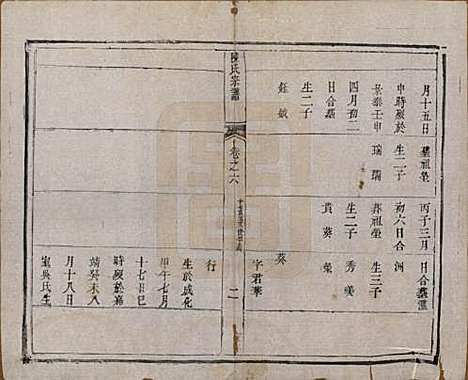 月十五日
申時殁於
景泰壬申
四月初二
日合墓
生二子
鈺 鉞
塟祖塋
生二子
瑞 瑞
丙子三月
初六日合
葬祖塋
生二子
貴 葵 榮
日合墓
洲
生三子
秀 美
葵
字君華
陳氏宗譜
卷之六
二
行
生於成化
甲午七月
十七日巳
時殁於嘉
靖癸未八
月十八日
室吳氏生